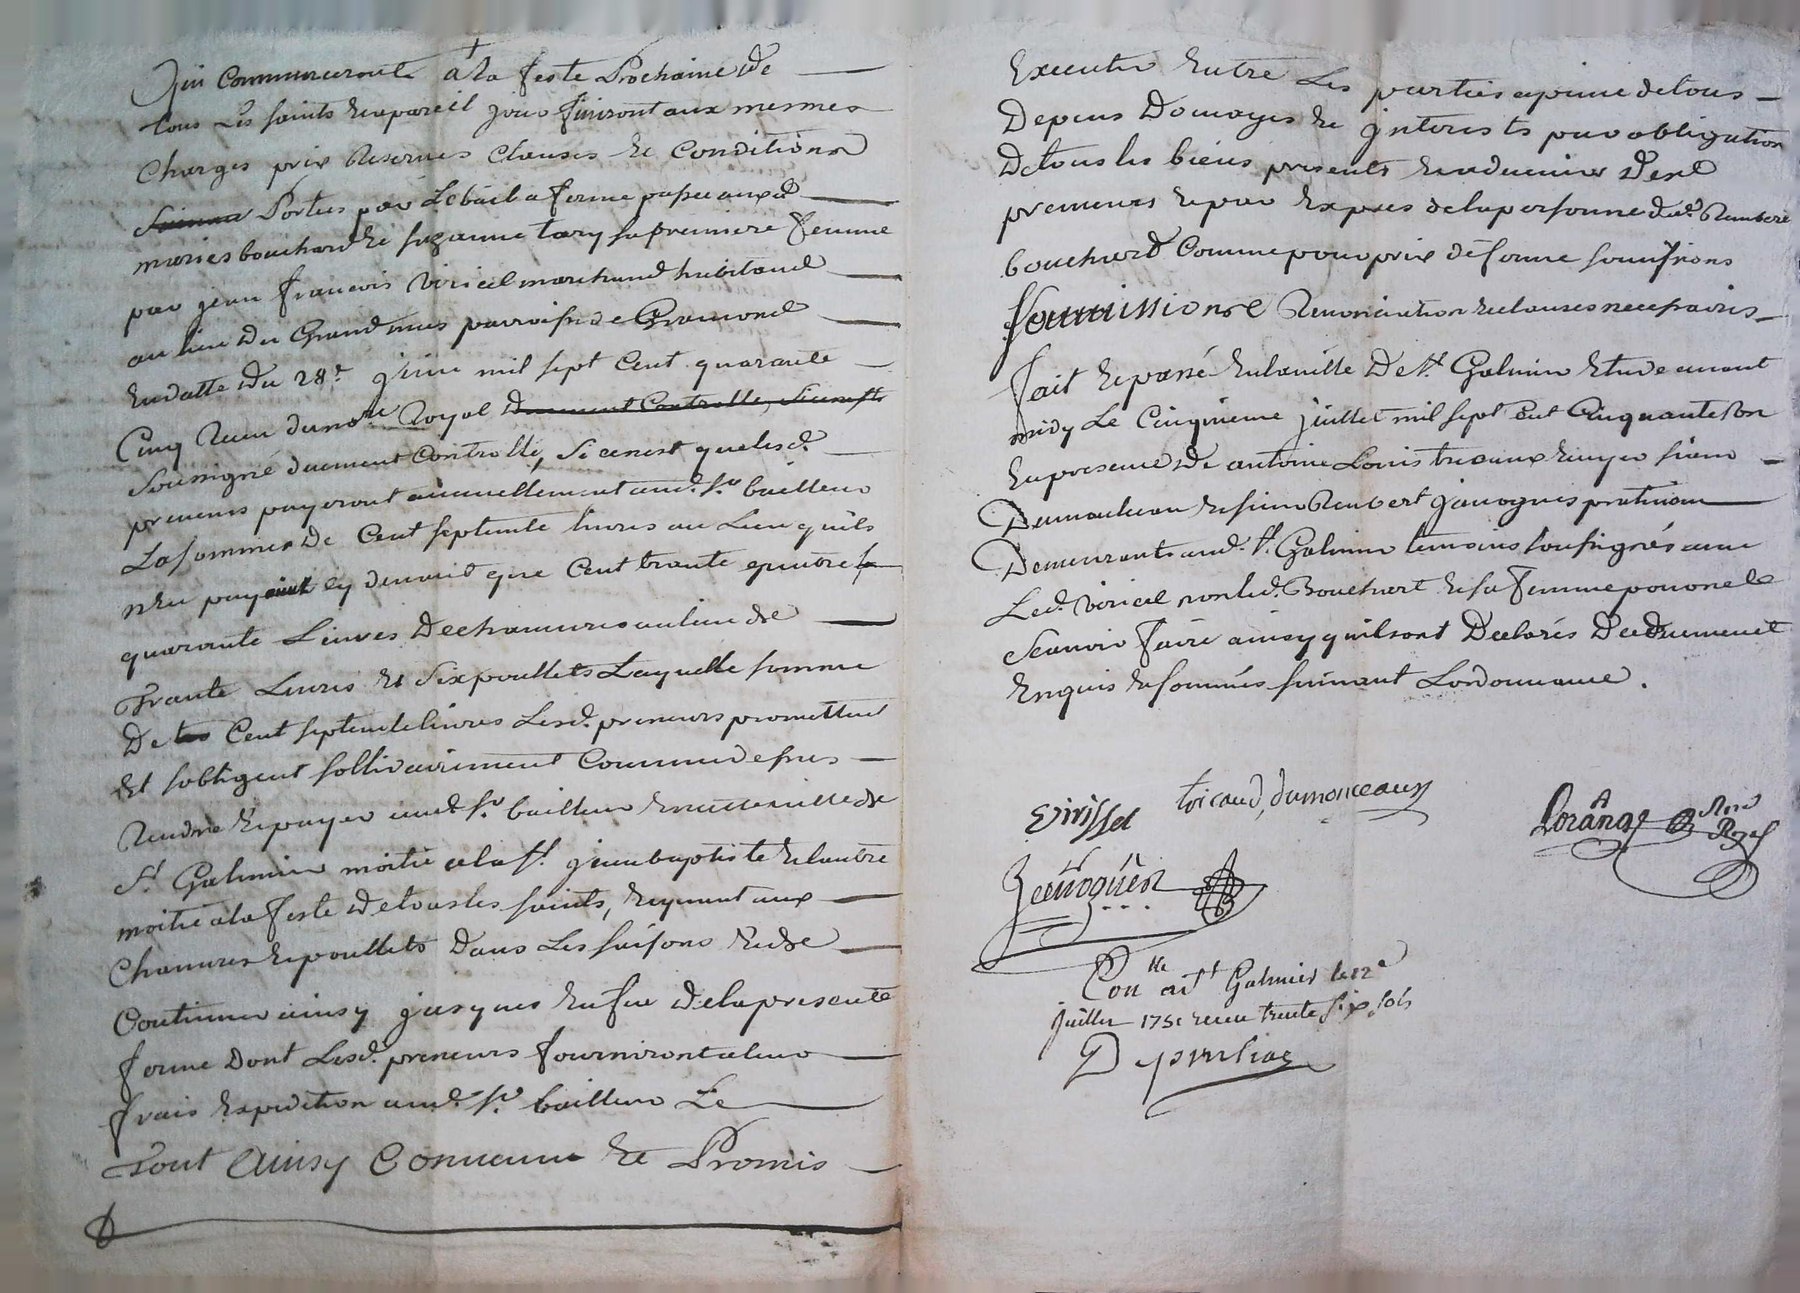 Qui commenceront a la feste Prochaine de
tous Les saints et a pareil jour finiront aux mesmes
Charges prix Reserves Clauses Et Conditions
Portés par Le bail a ferme passé auxd.
mariés bouchard Et suzanne tary sa premiere femme
par jean francois viricel marchand habitand
au lieu du Grand mas parroisse de Gramond
En datte du 28e juin mil sept Cent quarante
Cinq Receu du nore Royal duement Controllé,
soussigné duement Controllé, si ce nest que lesd.
preneurs payeront annuellement aud. sr. bailleur
La somme De Cent septente livres au Lieu quils
n'en payoient cy devant que Cent trante quatre
quarante Livres De chanvres au lieu de
Trante Livres Et six poullets Laquelle somme
De Cent septente livres Lesd. preneurs promettent
Et sobligent sollidairement Comme dessus
Rendre Et payer aud. sr. bailleur En cette ville de
St. Galmier moitié a la st. jean baptiste Et lautre
moitié a la feste de tous les saints, Et quant aux
Chanvres Et poullets Dans Les saisons Et de
Continuer ainsy jusques En fin de la presente
ferme Dont Lesd. preneurs fourniront a leur
frais Expedition aud. sr. bailleur Le
Tout Ainsy Convenu Et Promis
Executer Entre Les parties a peine de tous
Depens Domages Et jnterests par obligation
De tous les biens presents Et a venir Desd.
preneurs Et par Expres de la personne dud. Rambert
bouchard Comme pour prix de ferme
soumissions Renonciation Et clauses necessaires
fait Et passé En la ville De St. Galmier Etude avant
midy Le Cinquieme juillet mil sept Cent Cinquante Un
En presence de antoine Louis tricaud Ecuyer sieur
Dumonceau Et sieur Rambert javogues praticien
Demeurants aud. St. Galmier temoins soussignés avec
Led. viricel non led. Bouchart Et sa femme pour ne le
Scavoir faire ainsy quils ont Declarés De ce duement
Enquis Et sommés suivant Lordonnance.
Virissel
tricaud, dumonceaux
Lorange Nore Royal
Javogues
Conlle a St Galmier le 12e
juillet 1751 receu trente six sols